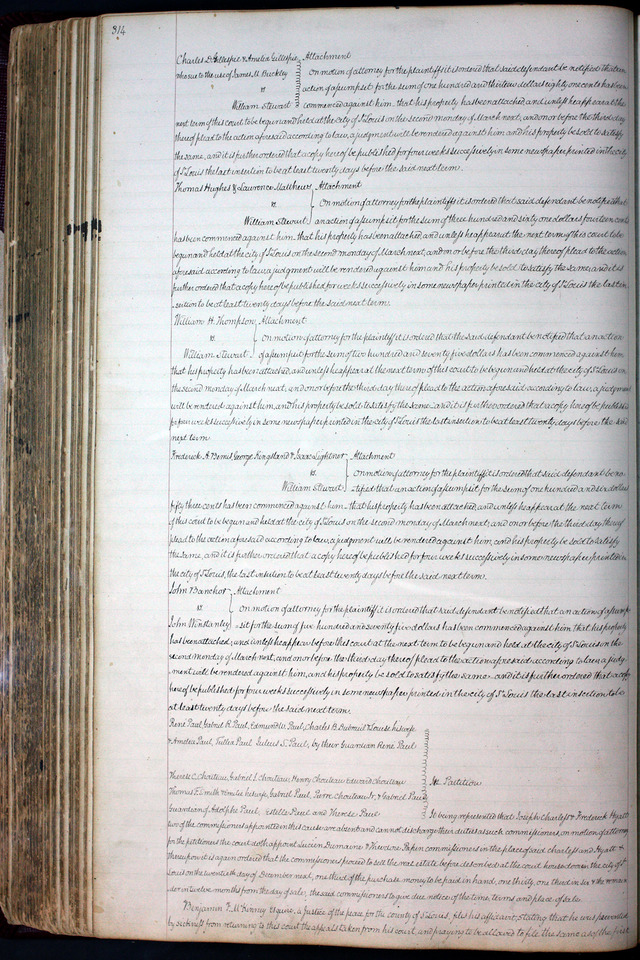 314
Charles D. Gillespie & Amelia Gillespie Attachment
who sue to the use of James M. Buckley on motion of attorney for the plaintiffs it is ordered that said defendant be notified that an
vs action of assumpsit for the sum of one hundred and thirteen dollars eighty one cents has been
William Stewart commenced against him, that his property has been attached, and unless he appear at the
next term of this court to be begun and held at the city of St Louis on the second monday of March next, and on or before the third day
thereof plead to the action aforesaid according to law, a judgment will be rendered against him and his property be sold to satisfy
the same, and it is further ordered that a copy hereof be published for four weeks successively in some newspaper printed in the city
of St Louis the last insertion to be at least twenty days before the said next term.
Thomas Hughes & Lawrence Matthews Attachment
vs On motion of attorney for the plaintiffs it is ordered that said defendant be notified that
William Stewart an action of assumpsit for the sum of three hundred and sixty one dollars fourteen cents
has been commenced against him, that his property has been attached, and unless he appear at the next term of this court to be
begun and held at the city of St Louis on the second monday of March next, and on or before the third day thereof plead to the action
aforesaid according to law, a judgment will be rendered against him and his property be sold to satisfy the same, and it is
further ordered that a copy hereof be published for weeks successively in some newspaper printed in the city of St Louis the last in-
sertion to be at least twenty days before the said next term.
William H. Thompson Attachment
vs on motion of attorney for the plaintiff it is ordered that the said defendant be notified that an action
William Stewart of assumpsit for the sum of two hundred and seventy five dollars has been commenced against him
that his property has been attached, and unless he appear at the next term of this court to be begun and held at the city of St Louis on
the second monday of March next, and on or before the third day thereof plead to the action aforesaid according to law, a judgment
will be rendered against him, and his property be sold to satisfy the same and it is further ordered that a copy hereof be published
for four weeks successively in some newspaper printed in the city of St Louis the last insertion to be at least twenty days before the said
next term
Frederick A. Bemis George Kingsland & Isaac Lightner Attachment
vs. on motion of attorney for the plaintiff it is ordered that said defendant be no-
William Stewart tified that an action of assumpsit for the sum of one hundred and six dollars
fifty three cents has been commenced against him that his property has been attached, and unless he appear at the next term
of this court to be begun and held at the city of St Louis on the second monday of March next, and on or before the third day thereof
plead to the action aforesaid according to law, a judgment will be rendered against him, and his property be sold to satisfy
the same, and it is further ordered that a copy hereof be published for four weeks successively in some newspaper printed in
the city of St Louis, the last insertion to be at least twenty days before the said next term.
John Attachment
vs on motion of attorney for the plaintiff it is ordered that said defendant be notified that an action of assump-
John Winstanley sit for the sum of five hundred and seventy five dollars has been commenced against him that his property
has been attached, and unless he appear before this court at the next term to be begun and held at the city of St Louis on the
second monday of March next, and on or before the third day thereof plead to the action aforesaid according to law a judg-
ment will be rendered against him, and his property be sold to satisfy the same, and it is further ordered that a copy
hereof be published for four weeks successively in some newspaper printed in the city of St Louis the last insertion to be
at least twenty days before the said next term.
René Paul, Gabriel R. Paul, Edmund W. Paul, Charles B. & Louise his wife
& Amelia Paul, Paul Julius S. Paul, by their Guardian René Paul
Therese C. Chouteau, Gabriel S. Chouteau, Henry Chouteau Edward Chouteau In Partition
Thomas F. Smith his wife, Gabriel Paul, Pierre Chouteau Jr. & Gabriel Paul
Guardian of Adolphe Paul, Estelle Paul and Therese Paul It being represented that Joseph Charless & Frederick Hyatt
two of the commissioners appointed in this cause are absent and cannot discharge their duties as such commissioners on motion of attorney
for the petitioners the court doth appoint Lucien Dumaine & Theodore Papin commissioners in the place of said Charless and Hyatt &
thereupon it is again ordered that the commissioners proceed to sell the real estate before described at the court house door in the city of St
Louis on the twentieth day of December next, one third of the purchase money to be paid in hand, one third in six & the remain-
der in twelve months from the day of sale, the said commissioners to give due notice of the time, terms and place of sale.
Benjamin F. McKinney Esquire, a justice of the peace for the county of St Louis, files his affidavit, stating that he was prevented
by sickness from returning to this court the appeals taken from his court, and praying to be allowed to file the same as of the first